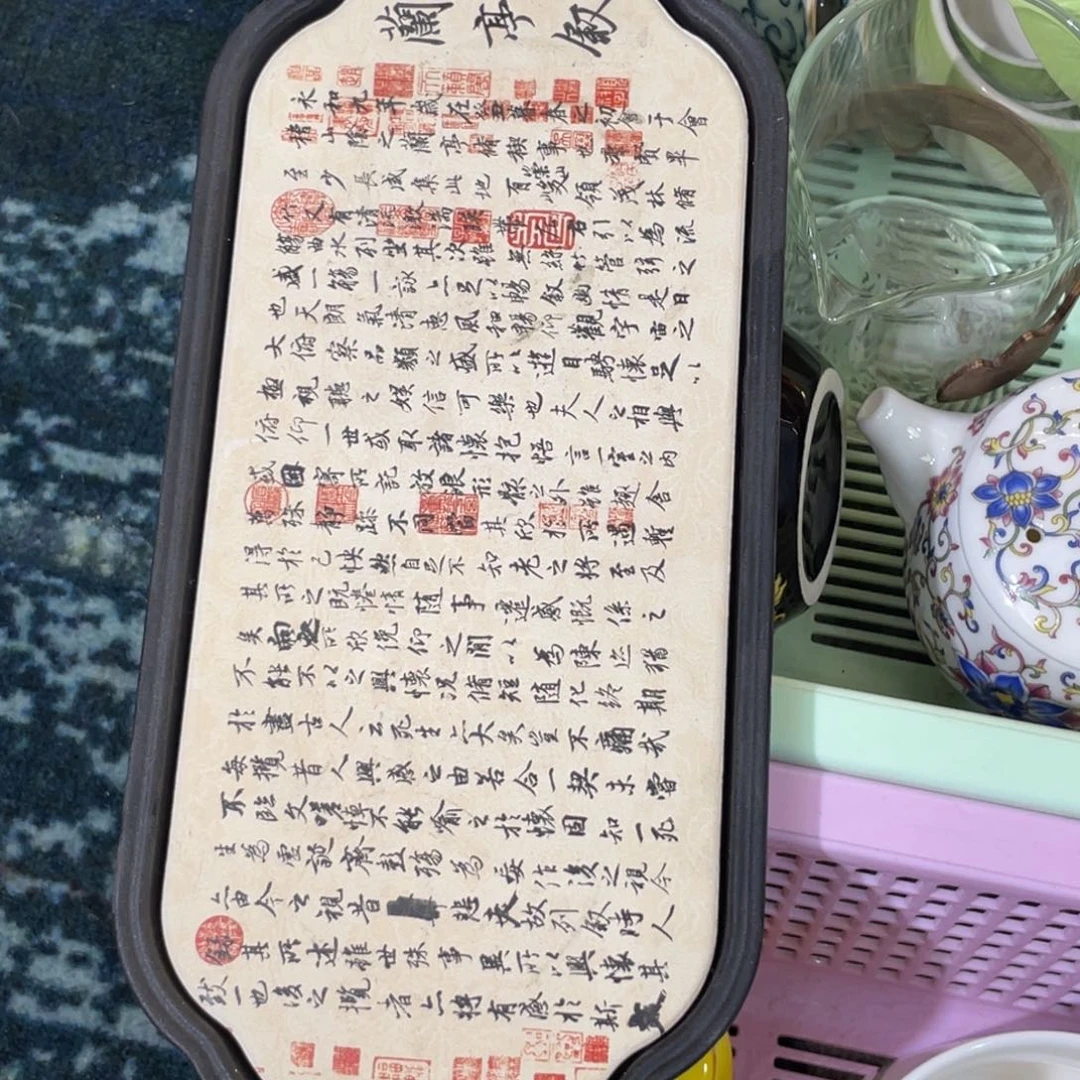 蘭亭叙
永和九年歲在癸丑暮春之初會于會
稽山陰之蘭亭脩稧事也羣賢畢
至少長咸集此地有崇山峻領茂林脩
竹又有清流激湍暎帶左右引以為流
觴曲水列坐其次雖無絲竹管弦之
盛一觴一詠亦足以暢叙幽情是日
也天朗氣清惠風和暢仰觀宇宙之
大俯察品類之盛所以遊目騁懷足以
極視聽之娛信可樂也夫人之相與
俯仰一世或取諸懷抱悟言一室之內
或因寄所託放浪形骸之外雖趣舍
萬殊靜躁不同當其欣於所遇暫
得於己怏然自足不知老之將至及
其所之既惓情隨事遷感慨係之
矣向之所欣俛仰之閒以為陳迹猶
不能不以之興懷況脩短隨化終期
於盡古人云死生亦大矣豈不痛哉
每攬昔人興感之由若合一契未嘗
不臨文嗟悼不能喻之於懷固知一死
生為虛誕齊彭殤為妄作後之視今
亦由今之視昔悲夫故列叙時人
錄其所述雖世殊事異所以興懷其
致一也後之攬者亦將有感於斯文